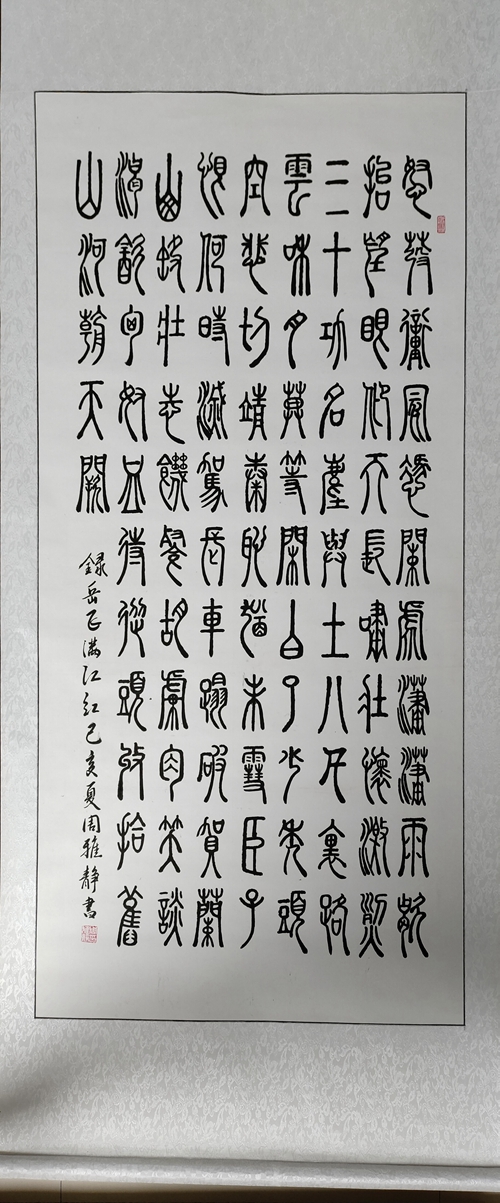 怒髮衝冠憑闌處瀟瀟雨歇
抬望眼仰天長嘯壯懷激烈
三十功名塵與土八千里路
雲和月莫等閑白了少年頭
空悲切靖康恥猶未雪臣子
恨何時滅駕長車蹋破賀蘭
山缺壯志饑餐胡虜肉笑談
渴飲匈奴血待從頭收拾舊
山河朝天闕
録岳飞满江红己亥夏周雅静書